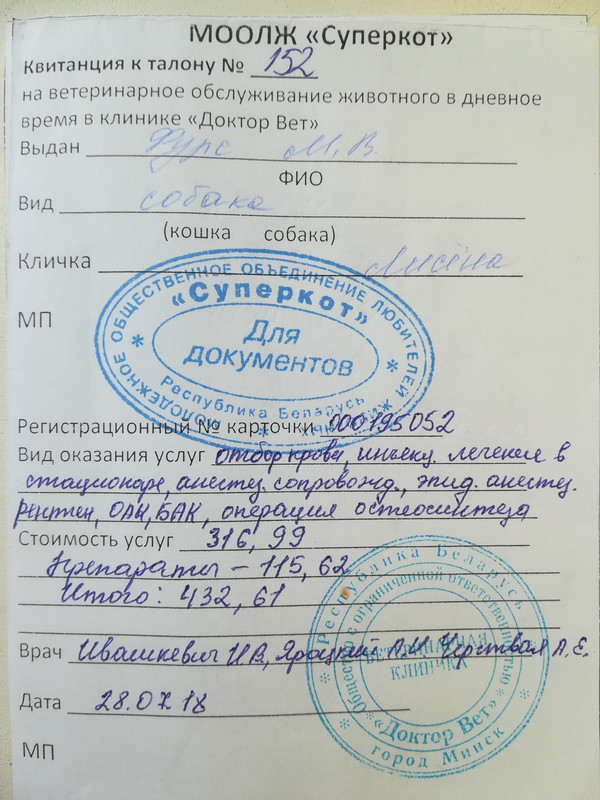 МООЛЖ «Суперкот»
Квитанция к талону № 152
на ветеринарное обслуживание животного в дневное
время в клинике «Доктор Вет»
Выдан Фурс М.В.
ФИО
Вид собака
(кошка собака)
Кличка
МОЛОДЕЖНОЕ ОБЩЕСТВЕННОЕ ОБЪЕДИНЕНИЕ ЛЮБИТЕЛЕЙ ЖИВОТНЫХ
«Суперкот»
Для
документов
Республика Беларусь
МП
Регистрационный № карточки 000195052
Вид оказания услуг отбор крови, инъекц. лечение в
стационаре, анестез. сопровожд., эпид. анестез.
рентген, ОАК, БАК, операция остеосинтеза
Стоимость услуг 316,99
Препараты – 115,62
Итого: 432,61
Республика Беларусь
Общество с ограниченной ответственностью
ВЕТЕРИНАРНАЯ
КЛИНИКА
«Доктор Вет»
город Минск
Врач Ивашкевич И.В., А.И. А.Е.
Дата 28.07.18
МП